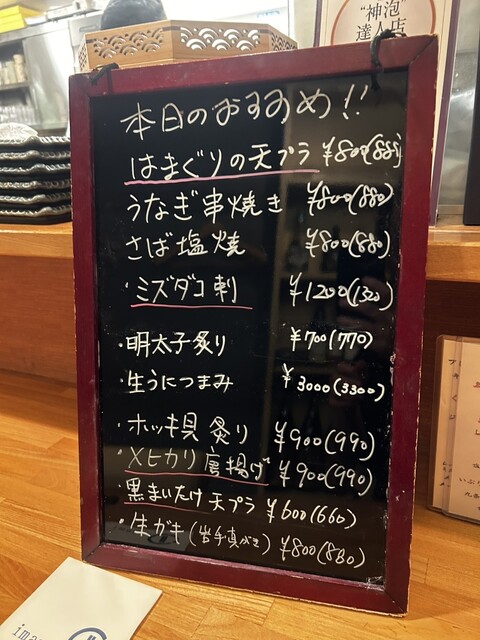 "神泡"
達人店
本日のおすすめ!!
はまぐりの天プラ ¥800(880)
うなぎ串焼き ¥800(880)
さば塩焼 ¥800(880)
・ミズダコ刺 ¥1200(1320)
・明太子炙り ¥700(770)
・生うにつまみ ¥3000(3300)
・ホッキ貝炙り ¥900(990)
・メヒカリ唐揚げ ¥900(990)
・黒まいたけ天プラ ¥600(660)
・生ガキ(岩手真がき) ¥800(880)